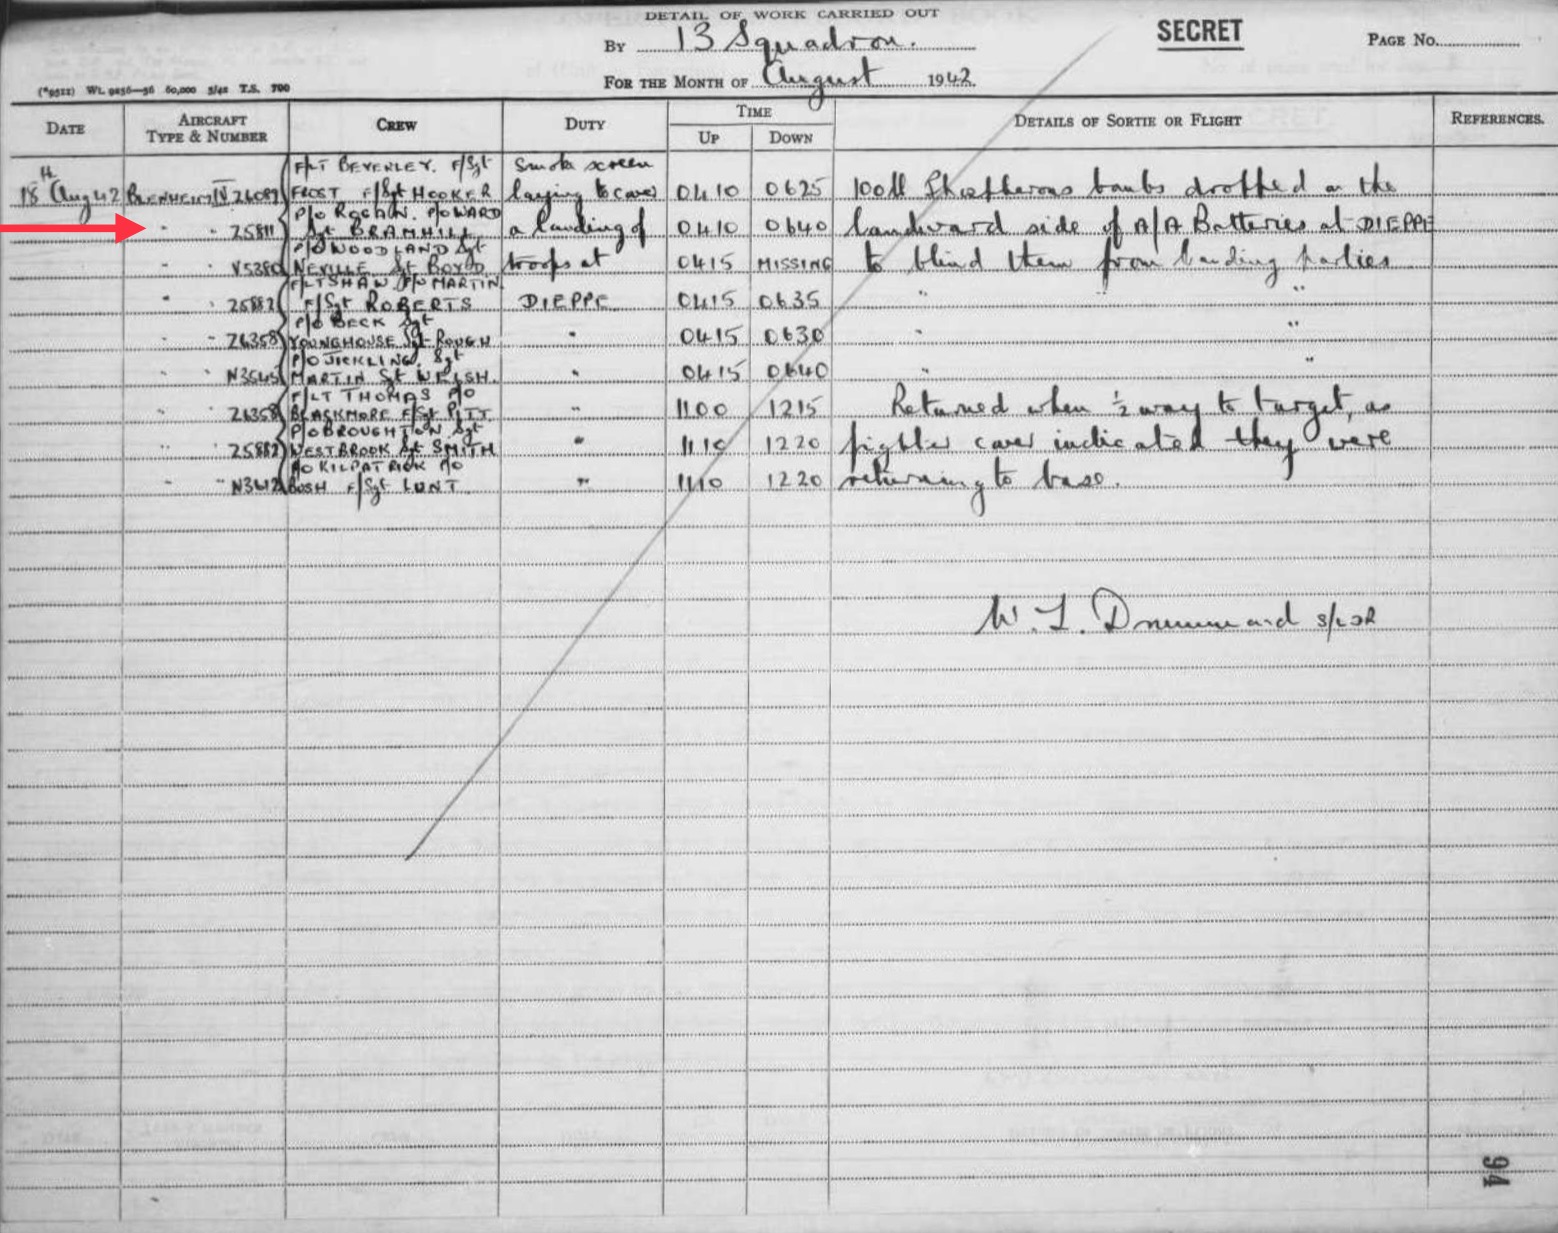 DETAIL OF WORK CARRIED OUT
SECRET
PAGE No.
By 13 Squadron.
FOR THE MONTH OF August 1942
(*9522) Wt. 9256—56 60,000 5/42 T.S. 700
DATE AIRCRAFT TYPE & NUMBER CREW DUTY TIME UP DOWN DETAILS OF SORTIE OR FLIGHT REFERENCES.
F/LT BEVERLEY. F/Sgt Smoke screen
18th Aug 42 BLENHEIM IV Z6089 FROST F/Sgt HOOKER laying to cover 0410 0625 100lb Phosphorous bombs dropped on the
P/O ROGAN. P/O WARD
" " Z5811 Sgt BRAMHILL a landing of 0410 0640 landward side of A/A Batteries at DIEPPE
P/O WOODLAND Sgt
" " V5380 NEVILLE Sgt BOYD troops at 0415 MISSING to blind them from landing parties
F/LT SHAW P/O MARTIN
" " Z5882 F/Sgt ROBERTS DIEPPE 0415 0635 " " "
P/O BECK Sgt
" " Z6358 YOUNGHOUSE Sgt ROUGH " 0415 0630 " "
P/O JICKLING. Sgt
" " N3545 MARTIN Sgt WELSH. " 0415 0640 " "
F/LT THOMAS P/O
" " Z6358 BLACKMORE F/Sgt PITT " 1100 1215 Returned when ½ way to target, as
P/O BROUGHTON Sgt
" " Z5882 WESTBROOK Sgt SMITH " 1110 1220 fighter cover indicated they were
P/O KILPATRICK P/O
" " BUSH F/Sgt LUNT " 1110 1220 returning to base.
W. L. Drummond S/LDR
94